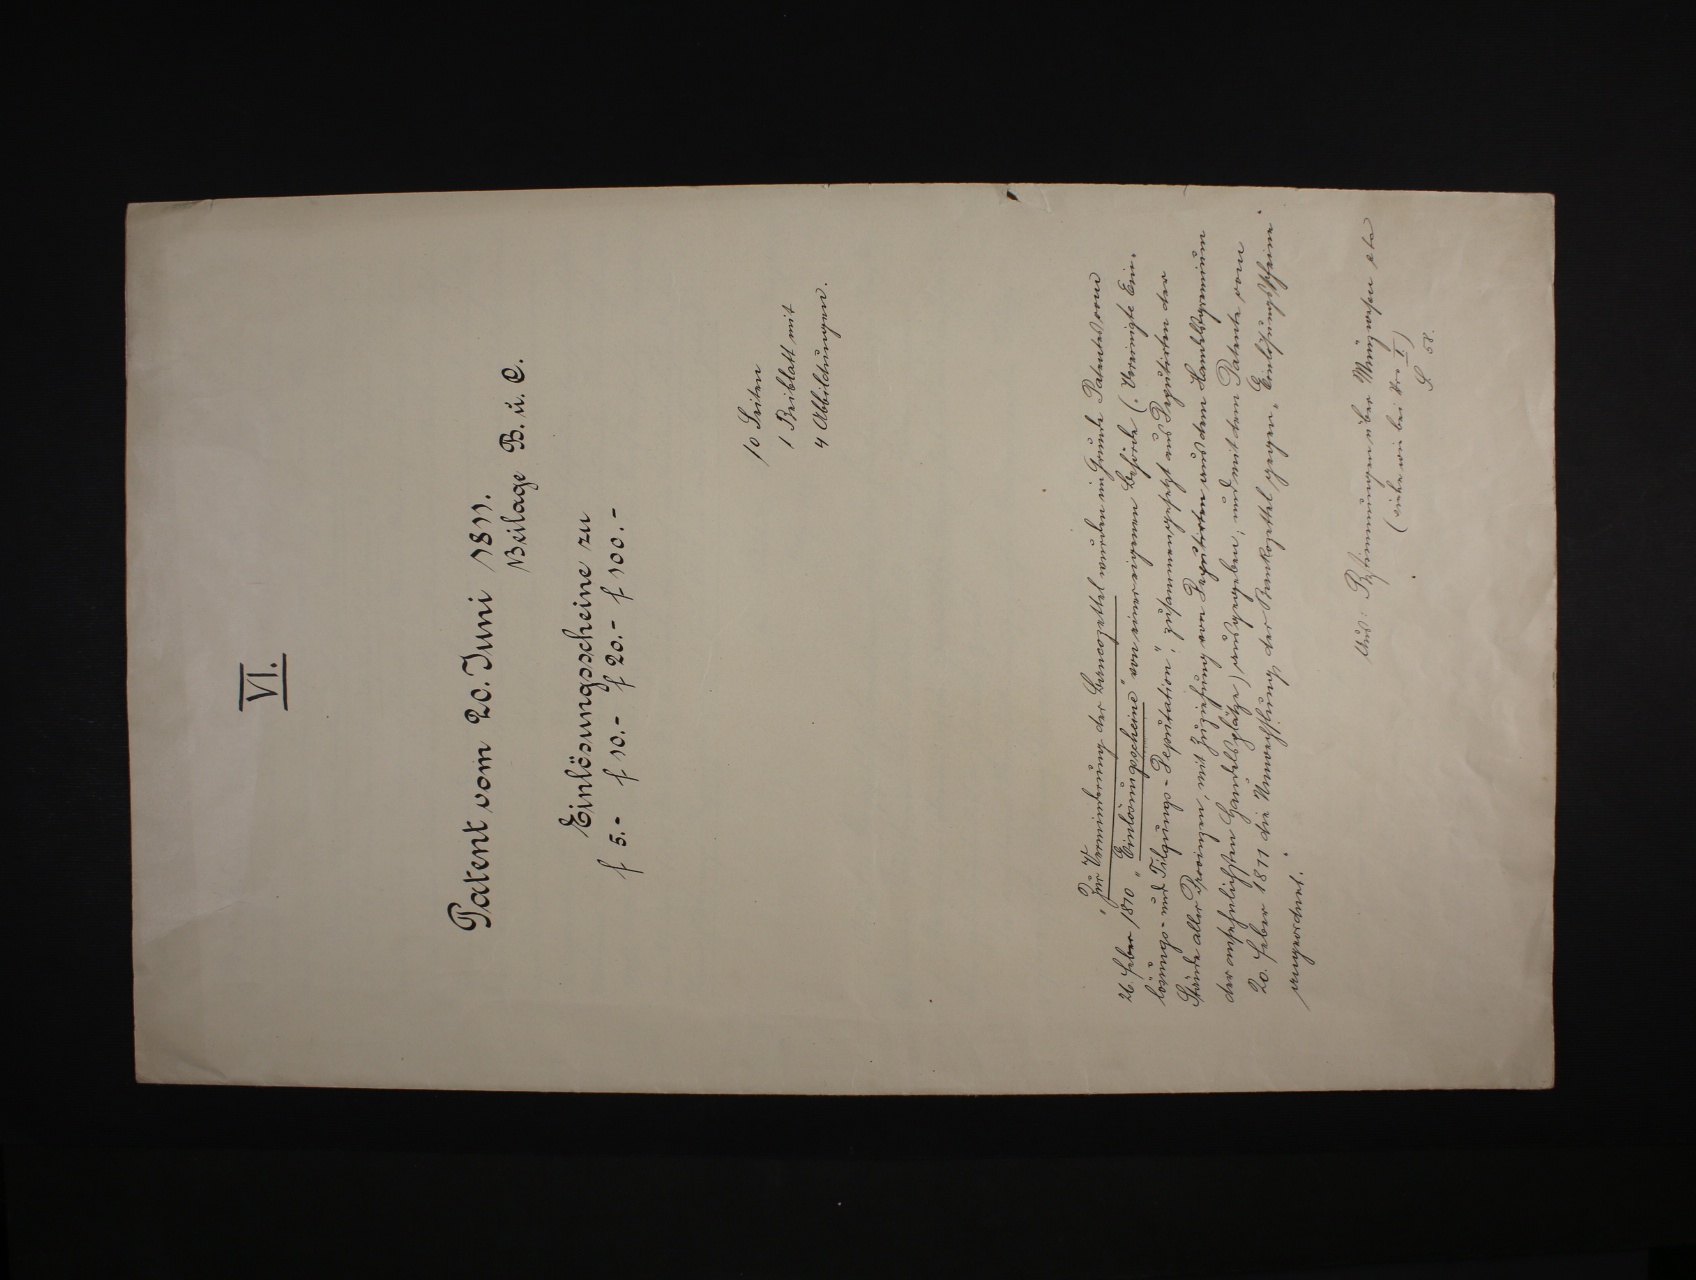 VI.
Patent vom 20. Juni 1811.
Beilage B. u. C.
Einlösungsscheine zu
f 5.- f 10.- f 20.- f 100.-
10 Seiten
1 Beiblatt mit
4 Abbildungen.
"Zur Verminderung der Bancozettel wurden im Grunde Patentes vom
26. Feber 1810 "Einlösungsscheine" von einer eigenen Behörde (. Vereinigte Ein-
lösungs- und Tilgungs-Deputation", zusammengesetzt aus Deputirten der
Stände aller Provinzen, mit Zuziehung von Deputirten aus dem Handelsgremium
der ansehnlichsten Handelsplätze) ausgegeben, und mit dem Patente vom
20. Feber 1811 die Umwechslung der Bankozettel gegen Einlösungsscheine
angeordnet.
Aus: Bestimmungen über Münzwesen etc
( bei No I)
S.